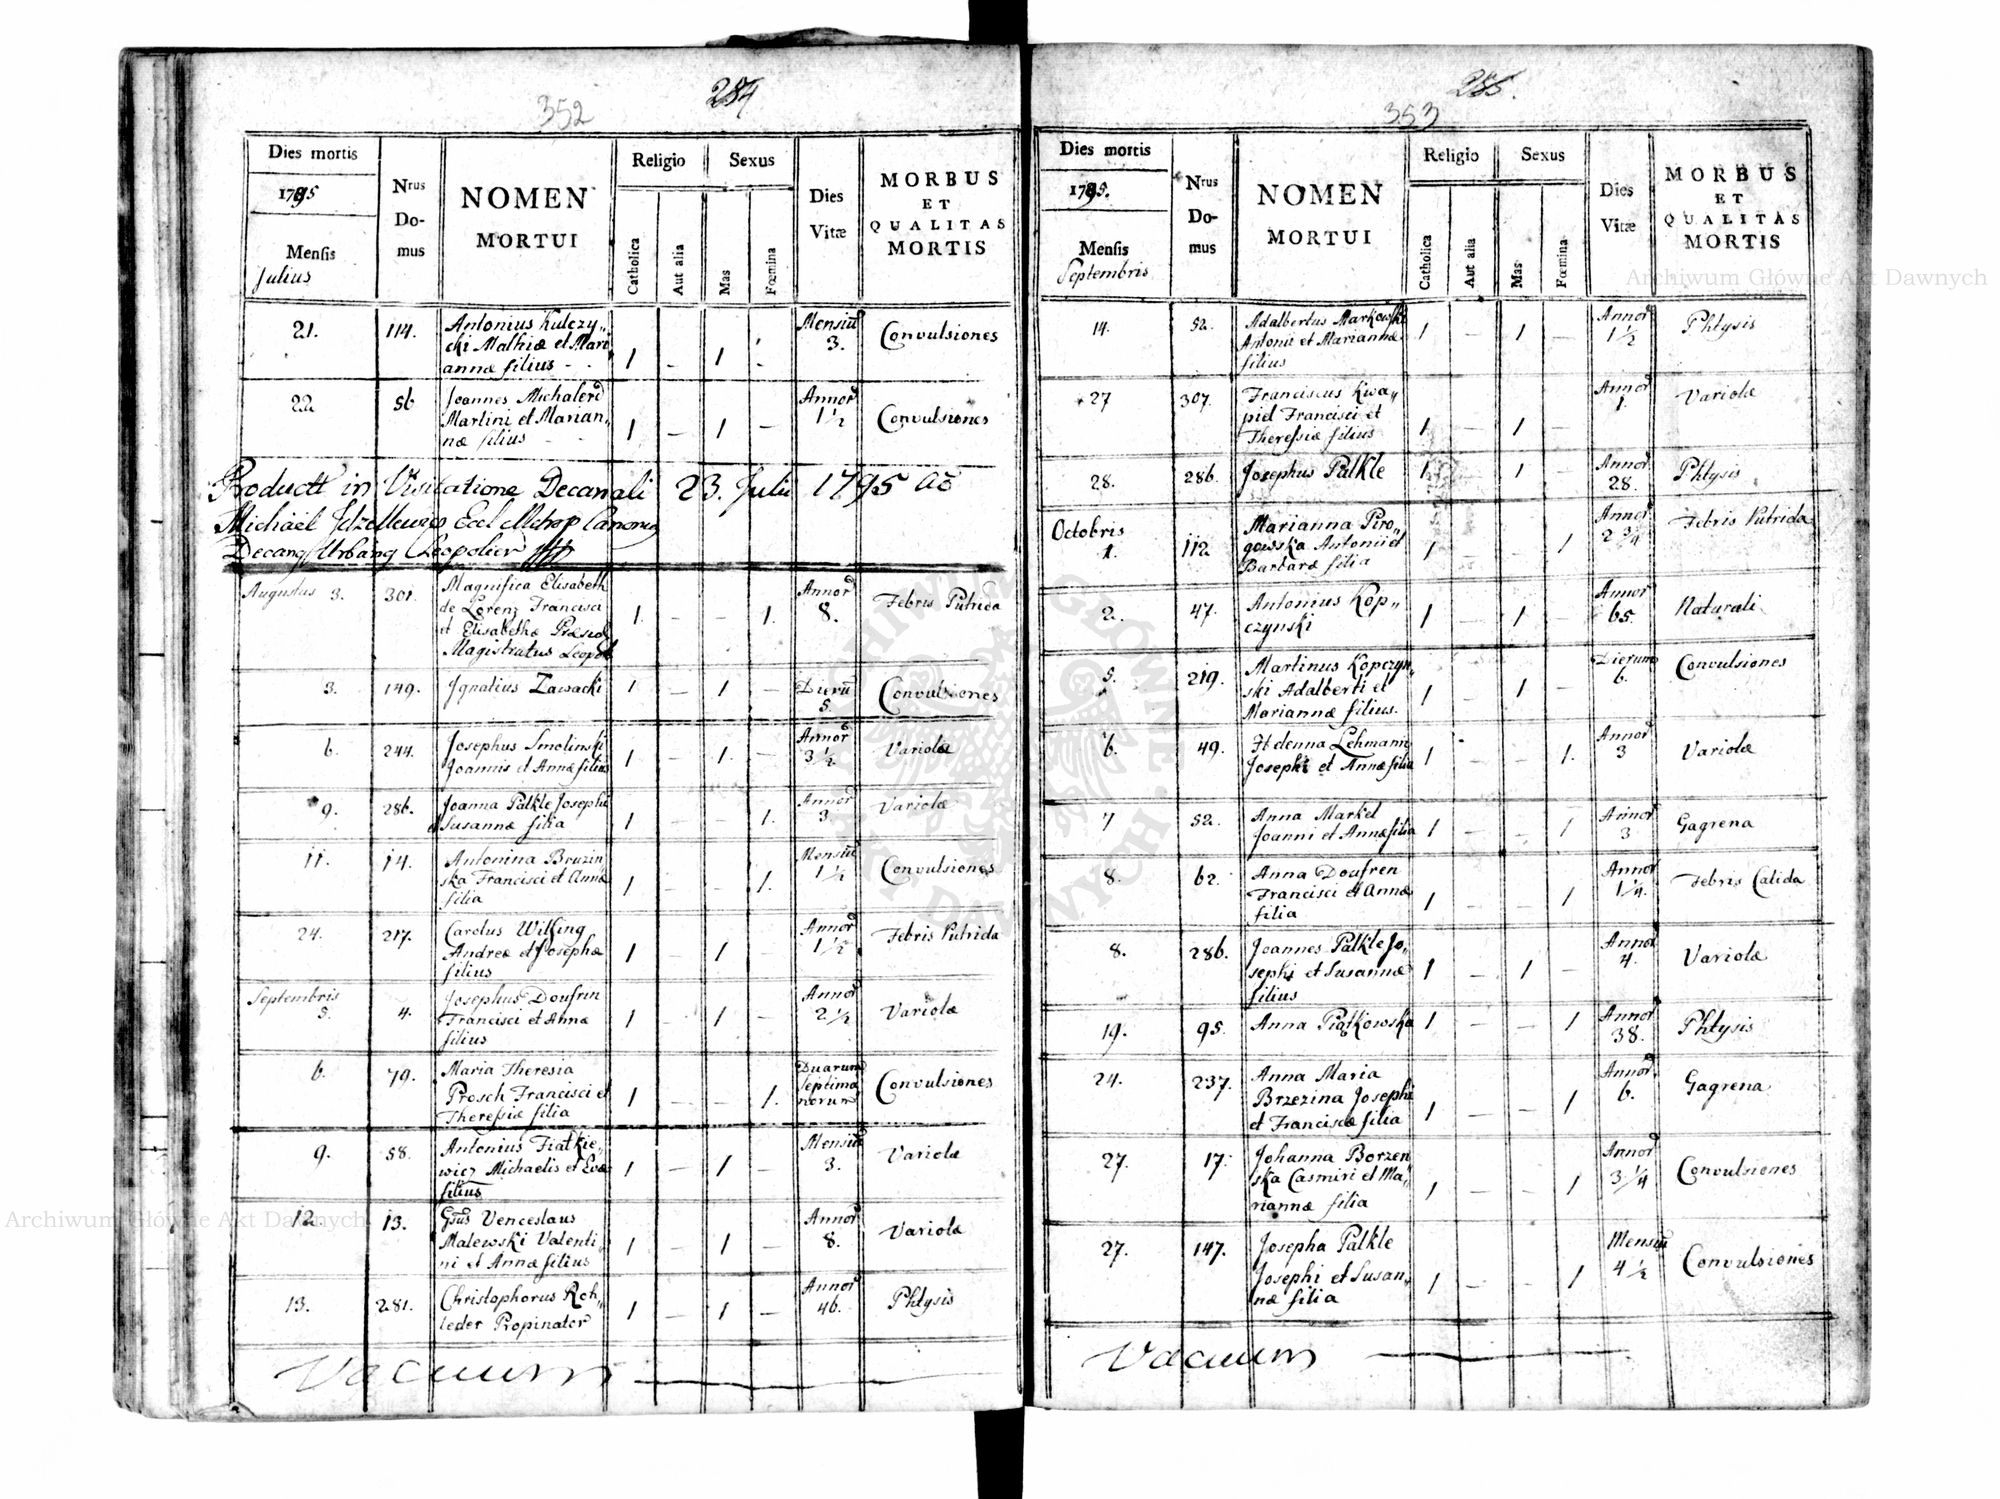 284
352
Dies mortis
1795
Mensis
Julius
Nrus
Do-
mus
NOMEN
MORTUI
Religio
Sexus
Catholica
Aut alia
Mas
Fœmina
Dies
Vitæ
MORBUS
ET
QUALITAS
MORTIS
21. 114. Antonius Kulczy„ Mensiu Convulsiones
cki Mathiæ et Mari 3.
annæ filius - - 1 - 1 -
22 56 Joannes Michalerd Annor Convulsiones
Martini et Marian„ 1½
næ filius - - 1 - 1 -
in Visitatione Decanali 23. Julii 1795
Michael Canonic
Decang Urbang
Augustus 3. 301. Magnifica Elisabeth Annor Febris Putrida
de Lorenz Francisci 1. 1. 8.
et Elisabethæ Præsid
Magistratus Leopol
3. 149. Ignatius Zawacki 1 - 1 - Dieru Convulsiones
5.
6. 244. Josephus Smolinski Annor Variolæ
Joannis et Annæ filius 1 - 1. - 3½
9. 286. Joanna Palkle Josephi Annor Variolæ
Susannæ filia 1 - - 1. 3
11. 14. Antonina Bruzin Mensiu Convulsiones
ska Francisci et Annæ 1½
filia 1 - - 1.
24. 217. Carolus Wilfing Annor Febris Putrida
Andreæ et Josephæ 1 - 1 - 1½
filius
Septembris
5. 4. Josephus Doufren Annor Variolæ
Francisci et Annæ 1 - 1 - 2½
filius
6. 79. Maria Theresia Duarum Convulsiones
Prosch Francisci et 1 - - 1. septima
Theresiæ filia norum
9. 58. Antonius Fiatkie„ Mensiu Variolæ
wicz Michaelis et Evæ 1 - 1 - 3.
filius
12. 13. Venceslaus Annor Variolæ
Malewski Valenti„ 1 - 1 - 8.
ni et Annæ filius
13. 281. Christophorus Roh„ Annor Phtysis
leder Propinator 1 - 1 - 46.
Vacuum
285.
353
Dies mortis
1795.
Mensis
Septembris
Nrus
Do-
mus
NOMEN
MORTUI
Religio
Sexus
Catholica
Aut alia
Mas
Fœmina
Dies
Vitæ
MORBUS
ET
QUALITAS
MORTIS
14. 52. Adalbertus Markowski Annor Phtysis
Antonii et Mariannæ 1 - 1 - 1½
filius
27 307. Franciscus Kwa„ Annor Variolæ
piel Francisci et 1.
Theresiæ filius 1 - 1 -
28. 286. Josephus Palkle 1. 1 - Annor Phtysis
28.
Octobris Marianna Piro„ Annor Febris Putrida
1. 112 gowska Antonii et 1 - - 1 2¾
Barbaræ filia
2. 47. Antonius Kop„ Annor Naturali
czynski 1 - 1 - 65.
5. 219. Martinus Kopczyn„ Dierum Convulsiones
ski Adalberti et 1 - 1 - 6.
Mariannæ filius.
6. 49. Helenna Lehmann Annor Variolæ
Josephi et Annæ filia 1 - - 1. 3
7 52. Anna Markel Annor Gagrena
Joanni et Annæ filia 1 - - 1 3
8. 62. Anna Doufren Annor Febris Calida
Francisci et Annæ 1 - - 1 1¼.
filia
8. 286. Joannes Palkle Jo„ Annor Variolæ
sephi et Susannæ 1 - 1 - 4.
filius
19. 95. Anna Piątkowska 1 - - 1 Annor Phtysis
38.
24. 237. Anna Maria Annor Gagrena
Brzezina Josephi 1 - - 1 6.
et Franciscæ filia
27. 17. Johanna Borzen„ Annor Convulsiones
ska Casmiri et Ma„ 1 - - 1 3¼
riannæ filia
27. 147. Josepha Palkle Mensiu Convulsiones
Josephi et Susan„ 1 - - 1 4½
næ filia
Vacuum
Archiwum Główne Akt Dawnych
Archiwum Główne Akt Dawnych
ARCHIWUM GŁÓWNE AKT DAWNYCH